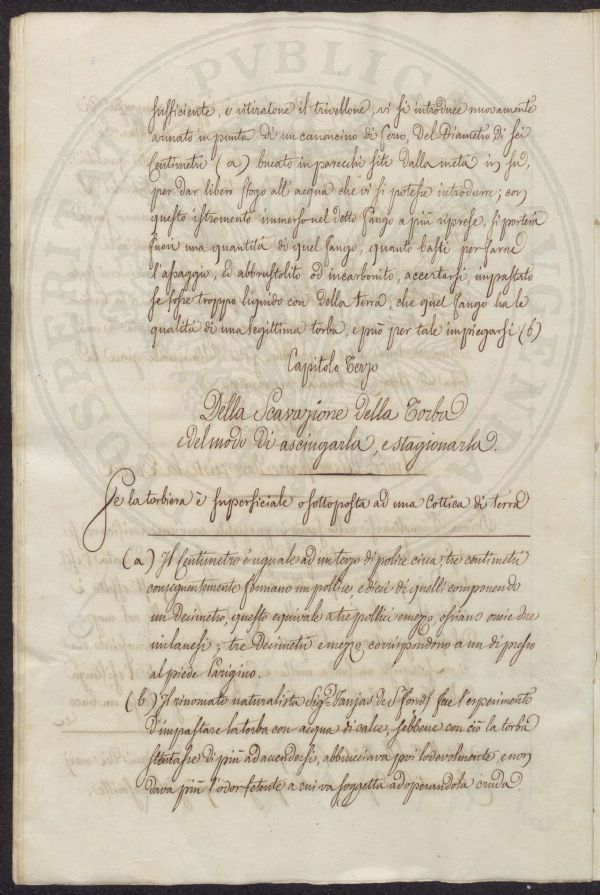 sufficiente, e ritiratone il trivellone, vi si introduce nuovamente
armato in punta di un canoncino di ferro, del Diametro di sei
Centimetri (a) bucato in parecchi siti dalla metà in sù,
per dar libero sfogo all'acqua che vi si potesse introdurre; con
questo istromento immerso nel detto fango a più riprese, si porterà
fuori una quantità di quel fango, quanto basti per farne
l'assaggio, ed abbrustolito od incarbonito, accertarsi, impastato
se fosse troppo liquido con della terra, che quel fango ha le
qualità di una legittima torba, e può per tale impiegarsi (b)
Capitolo Terzo
Della Scavazione della Torba
e del modo di asciugarla, e stagionarla.
Se la torbiera è superficiale o sottoposta ad una Cottica di terra
(a) Il Centimetro è uguale ad un terzo di police circa, tre centimetri
conseguentemente formano un pollice, e dieci di quelli componendo
un decimetro, questo equivale a tre pollici e mezzo, ossiano oncie due
milanesi; tre Decimetri e mezzo corrispondono a un di presso
al piede Parigino.
(b) Il rinomato naturalista Sig.r Faujas de S. Fond fece l'esperimento
d'impastare la torba con acqua di calce, sebbene con ciò la torba
stentasse di più ad accendersi, abbruciava poi lodevolmente, e non
dava più l'odor fetente a cui va soggetta adoperandola cruda.
PUBLICA
AUGENDA
PROSPERITATE